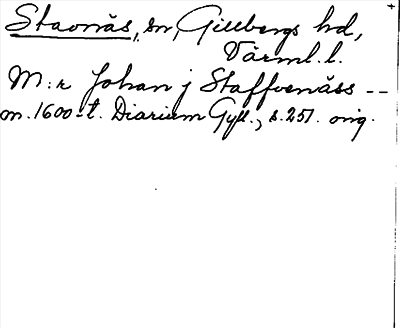 Stavnäs, sn, Gillbergs hd,
Värml. l.
M:r Johan j Staffuenäss --
m. 1600-t. Diarium Gyll., s. 257. orig.